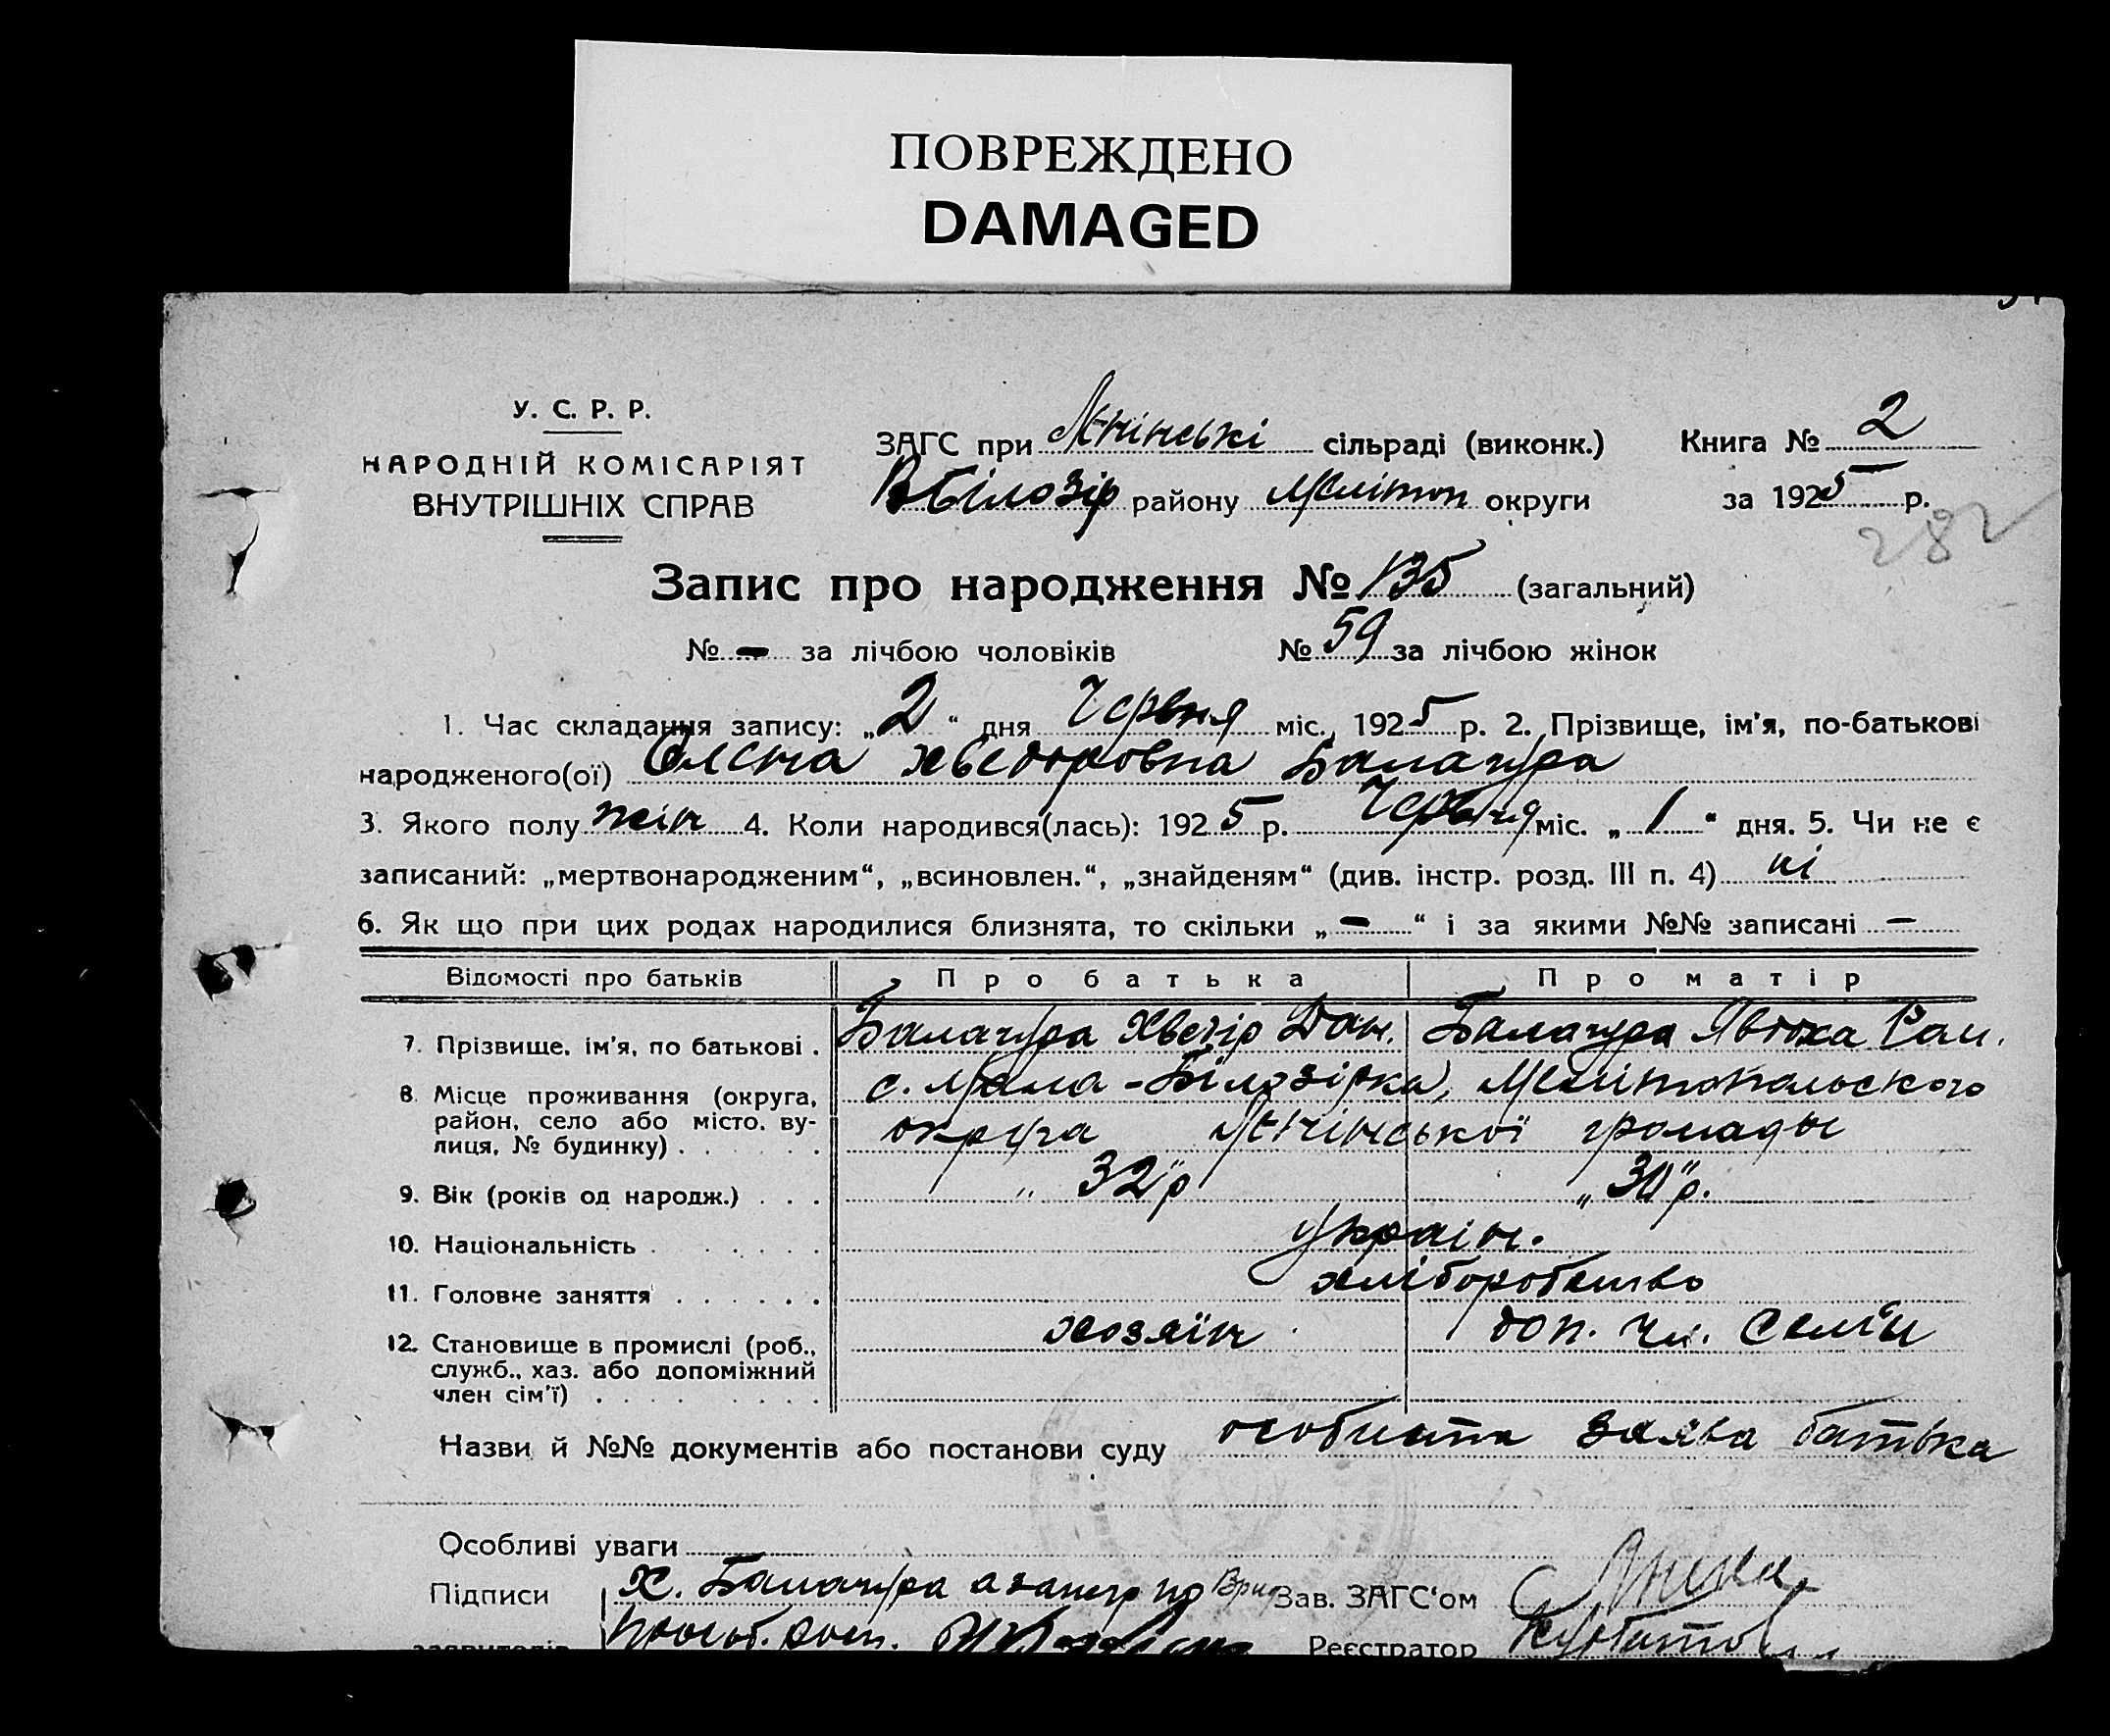 ПОВРЕЖДЕНО
DAMAGED
У. С. Р. Р.
НАРОДНІЙ КОМІСАРІЯТ
ВНУТРІШНІХ СПРАВ
ЗАГС при Лєнінські сільраді (виконк.)
ВБілозір району Мелітоп округи
Книга № 2
за 1925 р.
282
Запис про народження № 135 (загальний)
№ - за лічбою чоловіків № 59 за лічбою жінок
1. Час складання запису: „2“ дня Червня міс., 1925 р. 2. Прізвище, ім'я, по-батькові
народженого(ої) Олєна Хведоровна Балачура
3. Якого полу жін 4. Коли народився(лась): 1925 р. Червня міс. „1“ дня. 5. Чи не є
записаний: „мертвонародженим“, „всиновлен.“, „знайденям“ (див. інстр. розд. III п. 4) ні
6. Як що при цих родах народилися близнята, то скільки „-“ і за якими №№ записані -
Відомості про батьків Про батька Про матір
7. Прізвище, ім'я, по батькові . Балачура Хведір Дан. Балачура Явдоха Ром.
8. Місце проживання (округа, район, село або місто, вулиця, № будинку) . . . . . . с. Мала-Білозірка, Мелітопольского
округа Лєнінської громады
9. Вік (років од народж.) . . . „32“ р „30“ р.
10. Національність . . . . . . Україн.
11. Головне заняття . . . . . . хліборобство
12. Становище в промислі (роб., служб., хаз. або допоміжний член сім'ї) . . . . . . . хозяїн доп. чл. Семʼи
Назви й №№ документів або постанови суду особиста заява батька
Особливі уваги
Підписи Х. Балачура а за негр по Врид Зав. ЗАГС'ом
заявителів прозьб. росп. Реєстратор